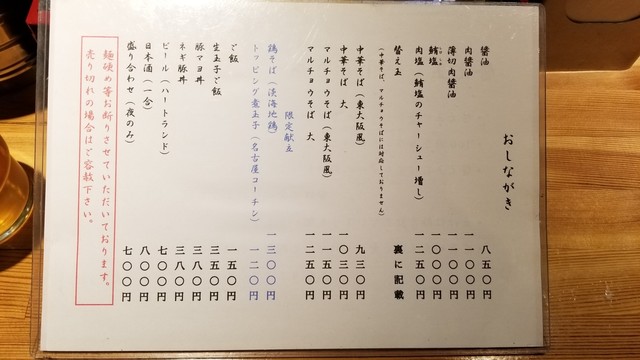 おしながき
醤油 八五〇円
肉醤油 一一〇〇円
薄切肉醤油 一一〇〇円
鮪塩 一〇〇〇円
肉塩（鮪塩のチャーシュー増し） 一二五〇円
替え玉 裏に記載
（中華そば、マルチョウそばには対応しておりません）
中華そば（東大阪風） 九三〇円
中華そば 大 一〇三〇円
マルチョウそば（東大阪風） 一一五〇円
マルチョウそば 大 一二五〇円
限定献立
鶏そば（淡海地鶏） 一三〇〇円
トッピング煮玉子（名古屋コーチン） 一二〇円
ご飯 一五〇円
生玉子ご飯 三五〇円
豚マヨ丼 三八〇円
ネギ豚丼 三八〇円
ビール（ハートランド） 七〇〇円
日本酒（一合） 八〇〇円
盛り合わせ（夜のみ） 七〇〇円
麺硬め等お断りさせていただいております。
売り切れの場合はご容赦下さい。